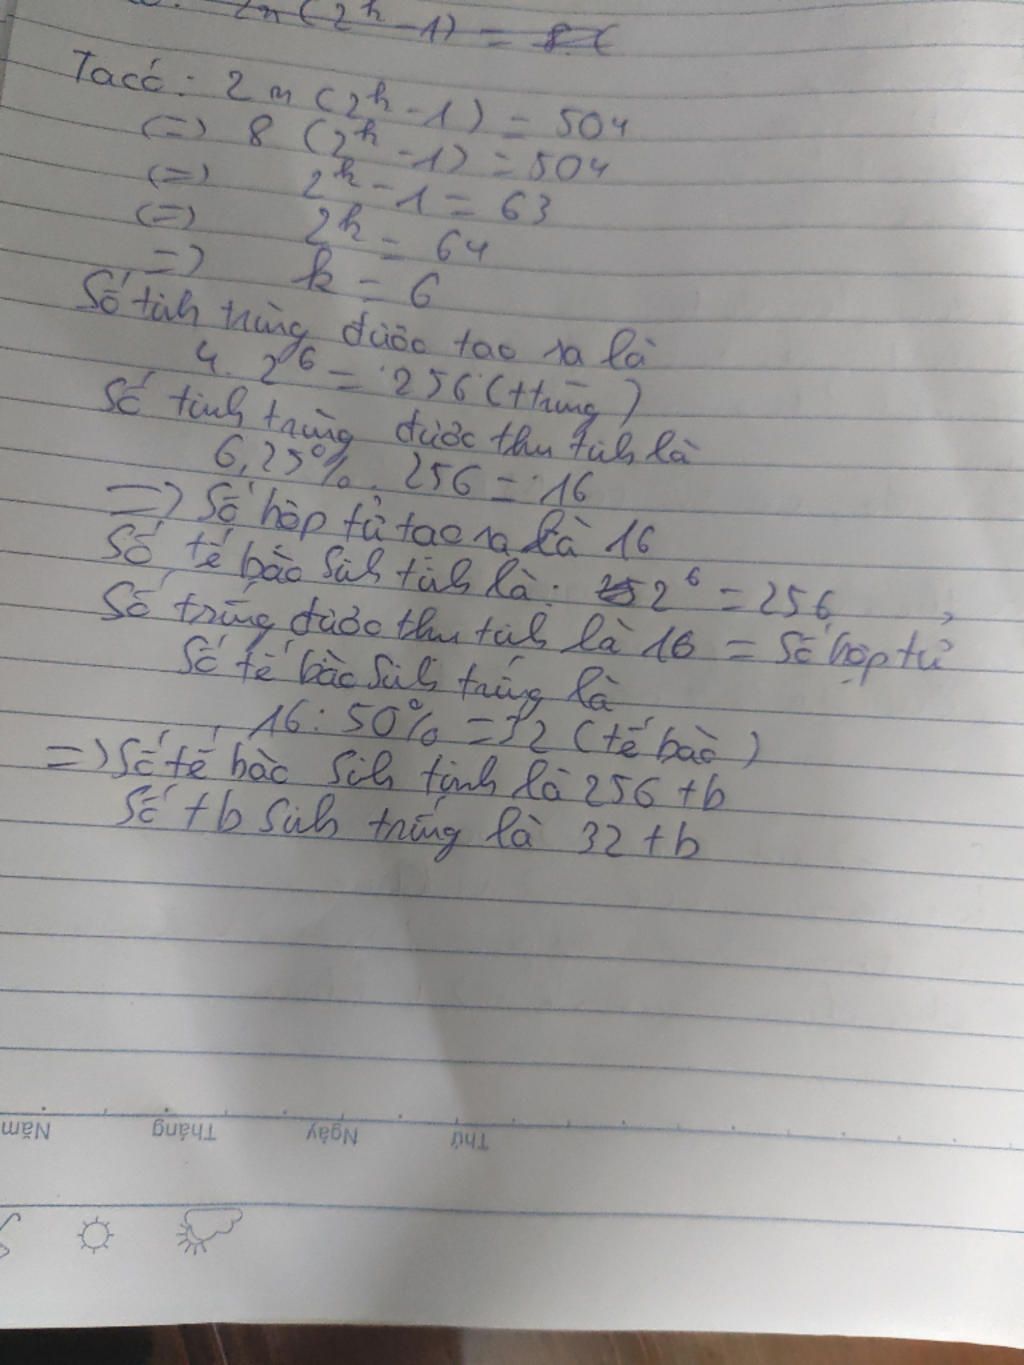 2n (2^k - 1) = 8 (
Ta có: 2n (2^k - 1) = 504
(=) 8 (2^k - 1) = 504
(=) 2^k - 1 = 63
(=) 2^k = 64
=) k = 6
Số tinh trùng được tạo ra là
4. 2^6 = 256 (ttrùng)
Số tinh trùng được thụ tinh là
6,25%. 256 = 16
=) Số hợp tử tạo ra là 16
Số tế bào sinh tinh là: 2^6 = 256,
Số trứng được thụ tinh là 16 = Số hợp tử
Số tế bào sinh trứng là
16 : 50% = 32 (tế bào)
=) Số tế bào sinh tinh là 256 tb
Số tb sinh trứng là 32 tb
Năm Tháng Ngày Thứ